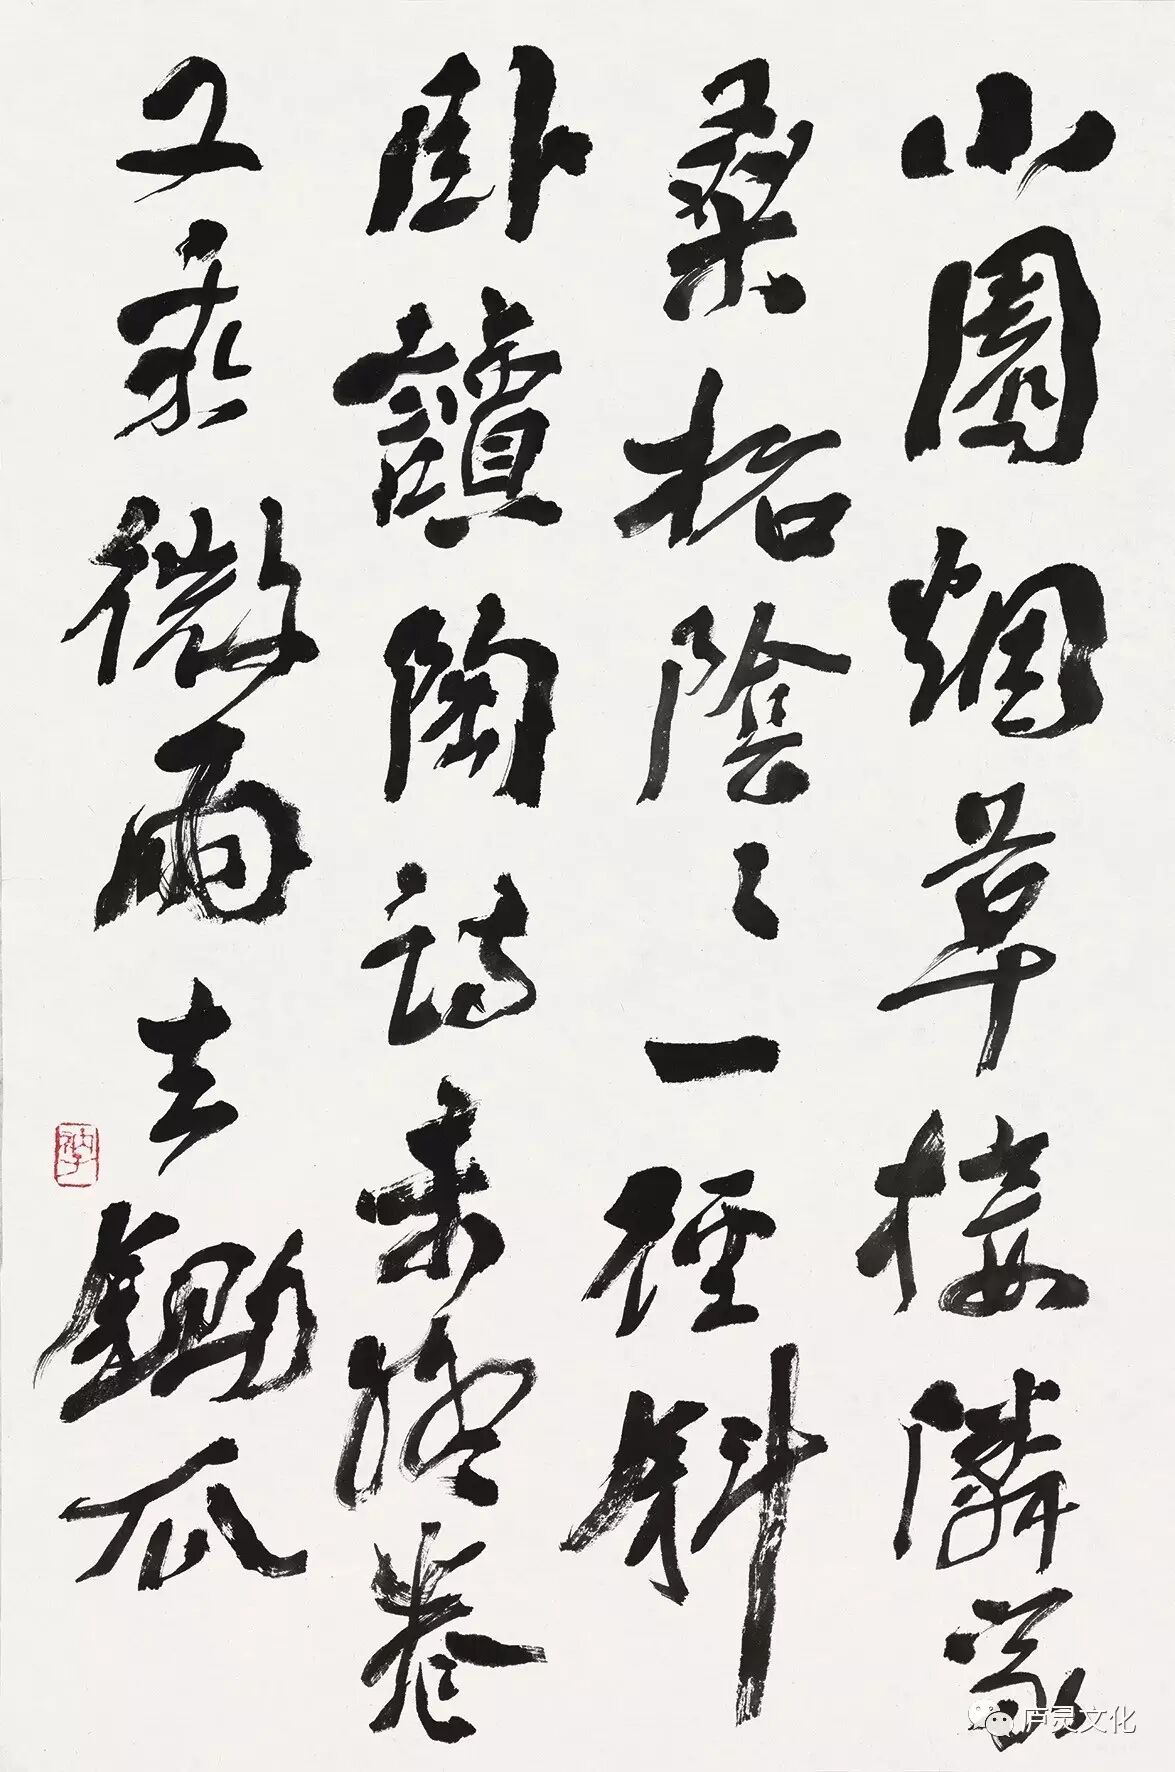 小園烟草接隣家
桑柘陰々一徑斜
卧讀陶詩未終卷
又乘微雨去鋤瓜
庐灵文化